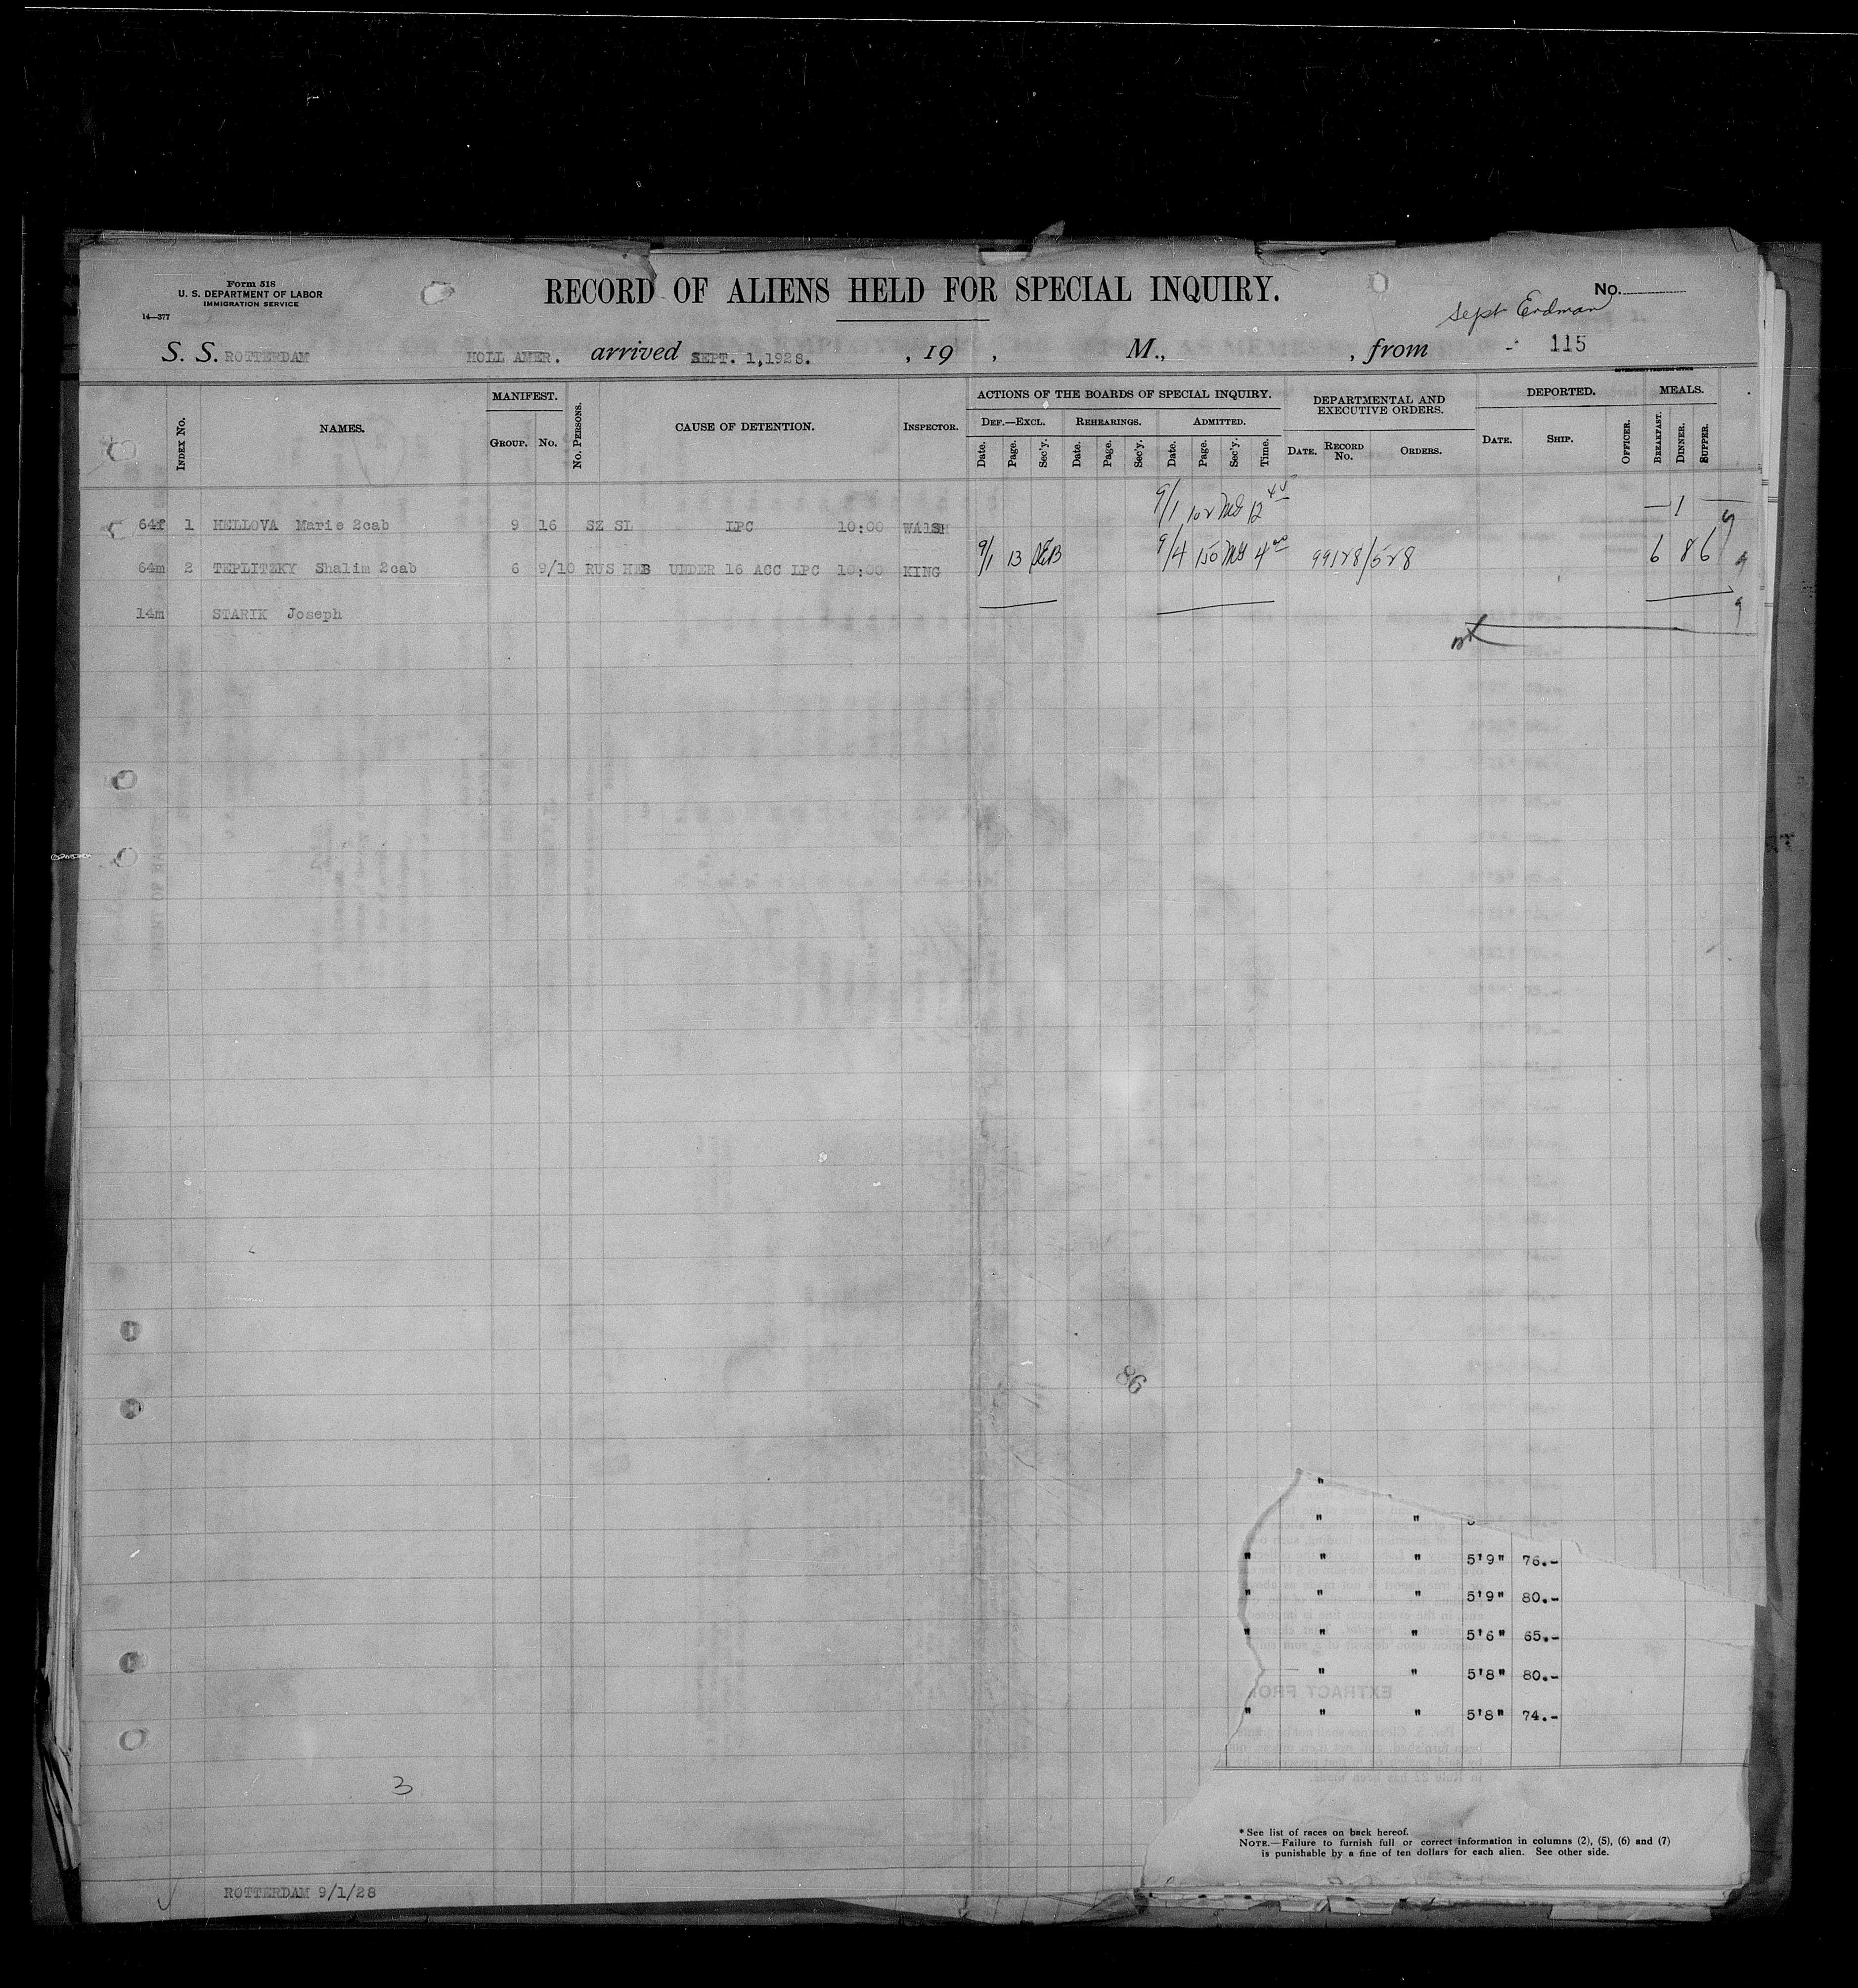 Form 518
U. S. DEPARTMENT OF LABOR
IMMIGRATION SERVICE
14—377
RECORD OF ALIENS HELD FOR SPECIAL INQUIRY.
No.
Sept Erdman
S. S. ROTTERDAM HOLL AMER. arrived SEPT. 1,1928. , 19 , M., , from - 115
Index No. NAMES. MANIFEST. Group. No. No. Persons. CAUSE OF DETENTION. Inspector. ACTIONS OF THE BOARDS OF SPECIAL INQUIRY. DEPARTMENTAL AND EXECUTIVE ORDERS. DEPORTED. MEALS.
Def.—Excl. Rehearings. Admitted.
Date. Page. Sec'y. Date. Page. Sec'y. Date. Page. Sec'y. Time. Date. Record No. Orders. Date. Ship. Officer. Breakfast. Dinner. Supper.
64f 1 HELLOVA Marie 2cab 9 16 SZ SL LPC 10:00 WALSH 9/1 102 MG 12 45 — 1 —
64m 2 TEPLITZKY Shalim 2cab 6 9/10 RUS HEB UNDER 16 ACC LPC 10:00 KING 9/1 13 9/4 150 MG 4 00 99128/528 6 8 6
14m STARIK Joseph
86
"
" "
" " " 5'9" 76.-
" " " 5'9" 80.-
" " " 5'6" 65.-
" " 5'8" 80.-
" " " 5'8" 74.-
EXTRACT FROM
3
* See list of races on back hereof.
Note.—Failure to furnish full or correct information in columns (2), (5), (6) and (7)
is punishable by a fine of ten dollars for each alien. See other side.
ROTTERDAM 9/1/28